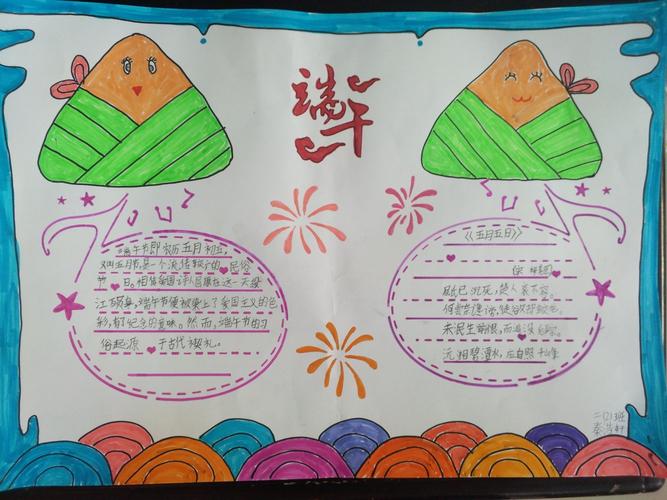 端午
端午节即农历五月初五,
又叫五月节,是一个流传较广的民俗
节日。相传爱国诗人屈原在这一天投
江殉身,端午节便被染上了爱国主义的色
彩,有了纪念的意味。然而,端午节的习
俗起源于古代禊礼。
《五月五日》
屈已沉死,楚人哀不容。
何尝奈谗谤,徒欲却蛟龙。
未民生前恨,而追没后踪。
沅湘碧潭水,应自照千峰
二(2)班